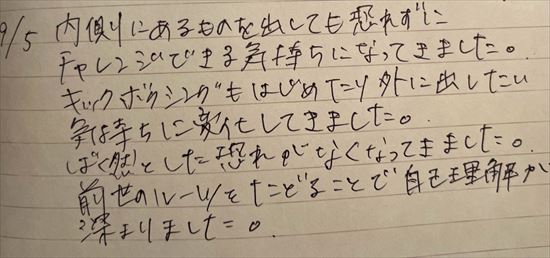 9/5 内側にあるものを出しても恐れずに
チャレンジできる気持ちになってきました。
キックボクシングもはじめたり外に出したい
気持ちに変化してきました。
ばく然とした恐れがなくなってきました。
前世のルーツをたどることで自己理解が
深まりました。